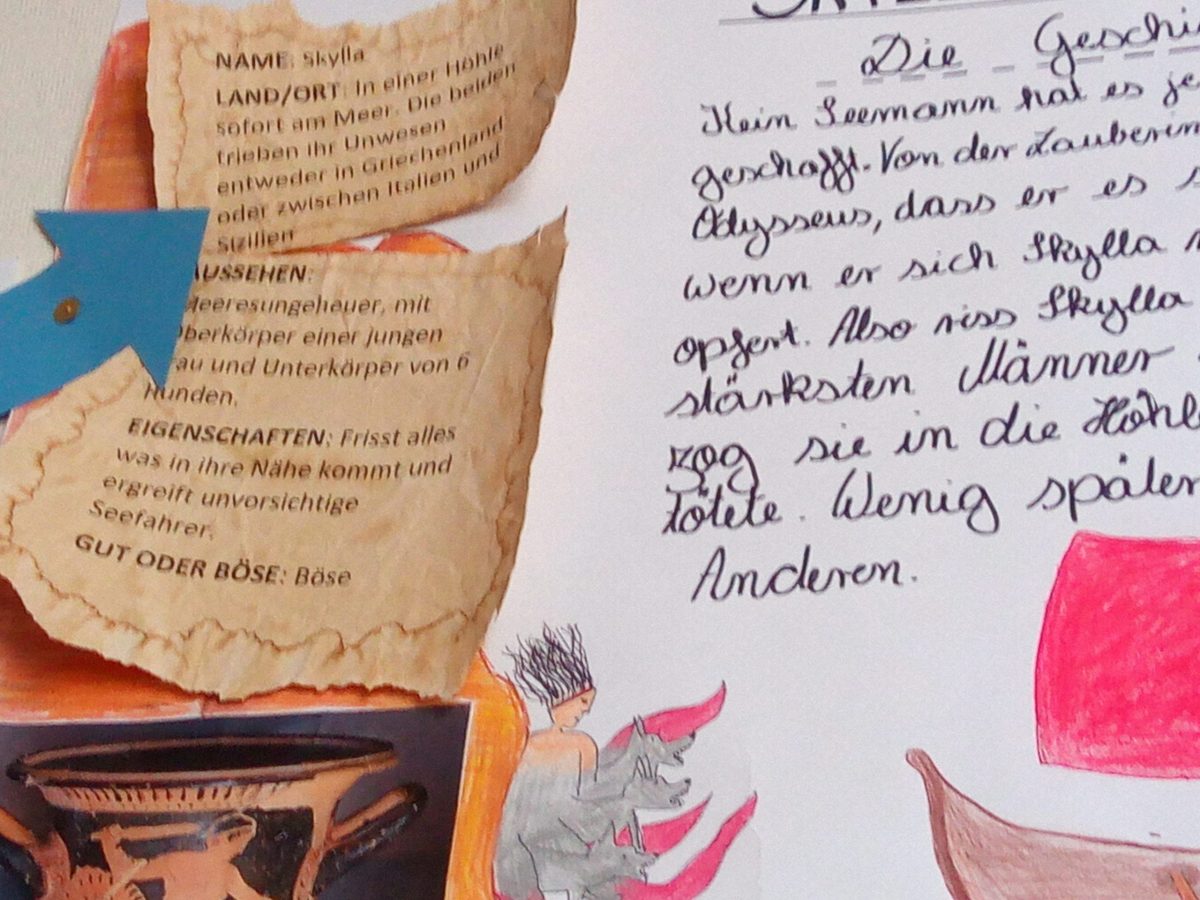 NAME: Skylla
LAND/ORT: In einer Höhle
sofort am Meer. Die beiden
trieben ihr Unwesen
entweder in Griechenland
oder zwischen Italien und
Sizilien
AUSSEHEN:
Meeresungeheuer, mit
Oberkörper einer jungen
Frau und Unterkörper von 6
Hunden.
EIGENSCHAFTEN: Frisst alles
was in ihre Nähe kommt und
ergreift unvorsichtige
Seefahrer.
GUT ODER BÖSE: Böse
Die Geschi
Kein Seemann hat es je
geschafft. Von der Zauberin
Odysseus, dass er es s
wenn er sich Skylla
opfert. Also riss Skylla
stärksten Männer
zog sie in die Höhl
tötete. Wenig später
Anderen.